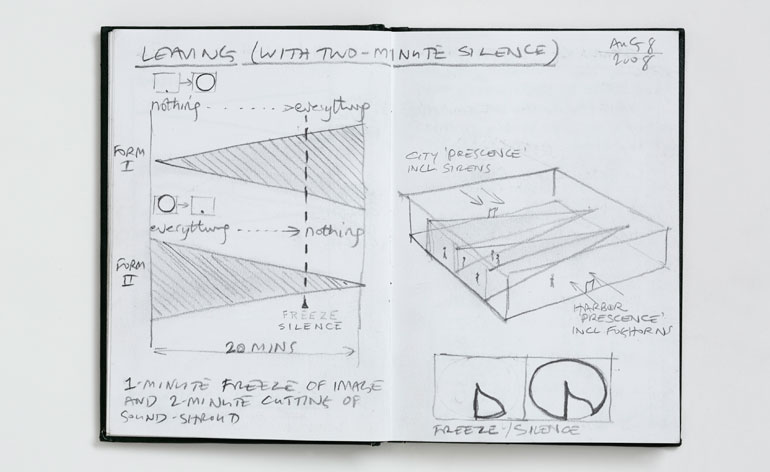 LEAVING (WITH TWO-MINUTE SILENCE)
AUG 8
2008
nothing everything
FORM
I
everything nothing
FORM
II
FREEZE
SILENCE
20 MINS
1-MINUTE FREEZE OF IMAGE
AND 2-MINUTE CUTTING OF
SOUND-SHROUD
CITY 'PRESCENCE'
INCL SIRENS
HARBOR
'PRESCENCE'
INCL FOGHORNS
FREEZE-/SILENCE